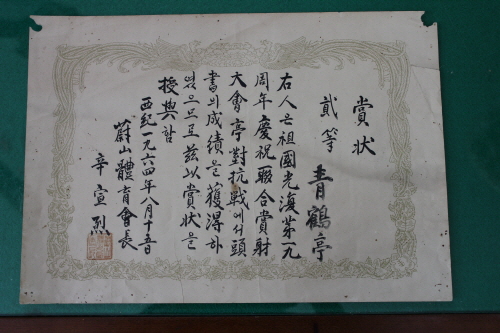 賞狀
貳等 靑鶴亭
右人은祖國光復第一九
周年慶祝聯合賞射
大會亭對抗戰에서頭
書의成績을獲得하
였으므로玆以賞狀을
授與함
西紀一九六四年八月十五日
蔚山體育會長
辛宣烈